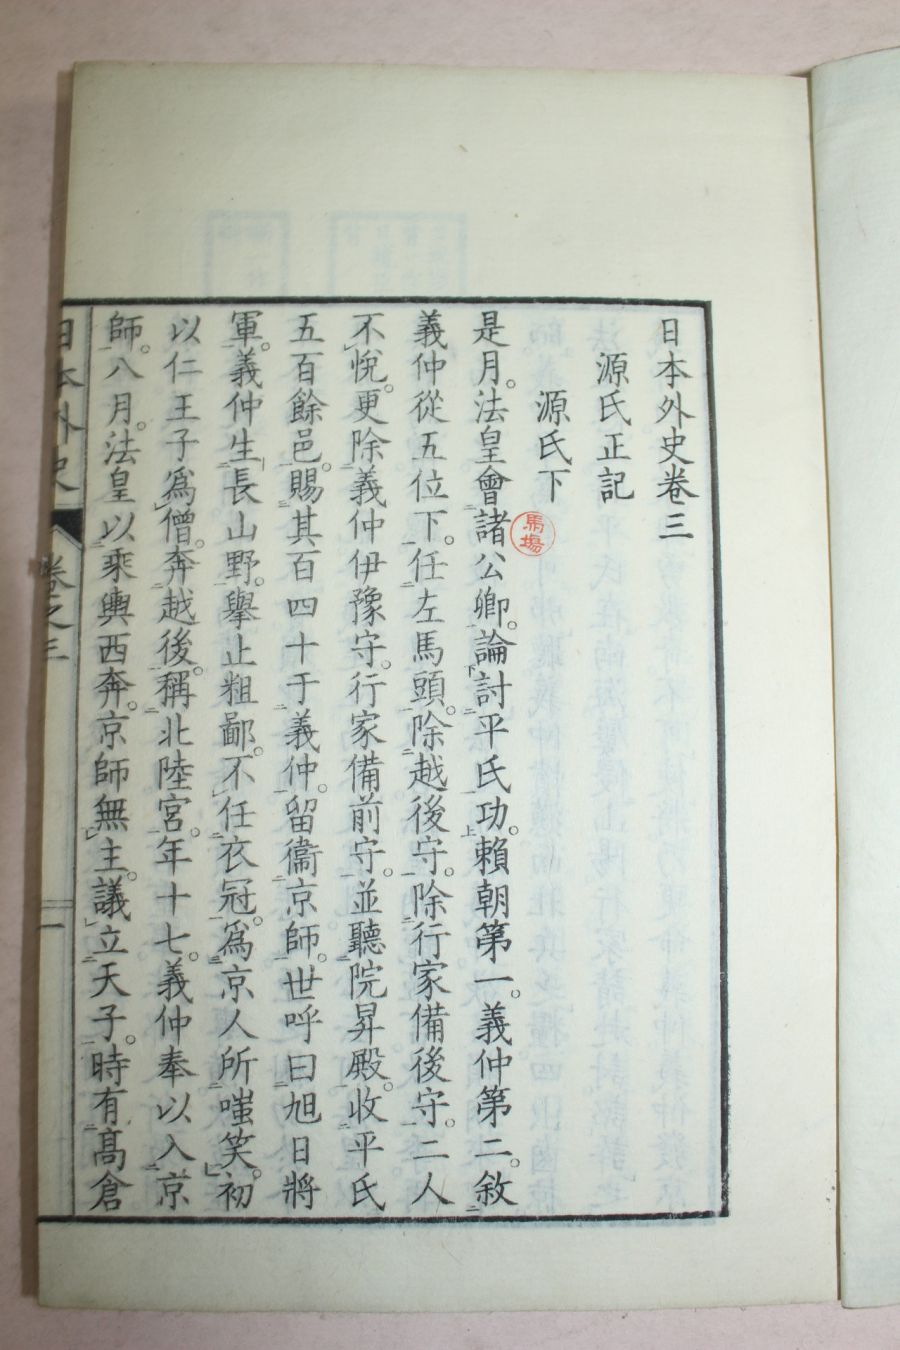 日本外史卷三
源氏正記
源氏下
馬場
是月。法皇會諸公卿。論討平氏功。賴朝第一。義仲第二。敘
義仲從五位下。任左馬頭。除越後守。除行家備後守。二人
不悅。更除義仲伊豫守。行家備前守。並聽院昇殿。收平氏
五百餘邑。賜其百四十于義仲。留衞京師。世呼曰旭日將
軍。義仲生長山野。擧止粗鄙。不任衣冠。爲京人所嗤笑。初
以仁王子爲僧。奔越後。稱北陸宮。年十七。義仲奉以入京
師。八月。法皇以乘輿西奔。京師無主。議立天子。時有髙倉
日本外史 卷之三 一